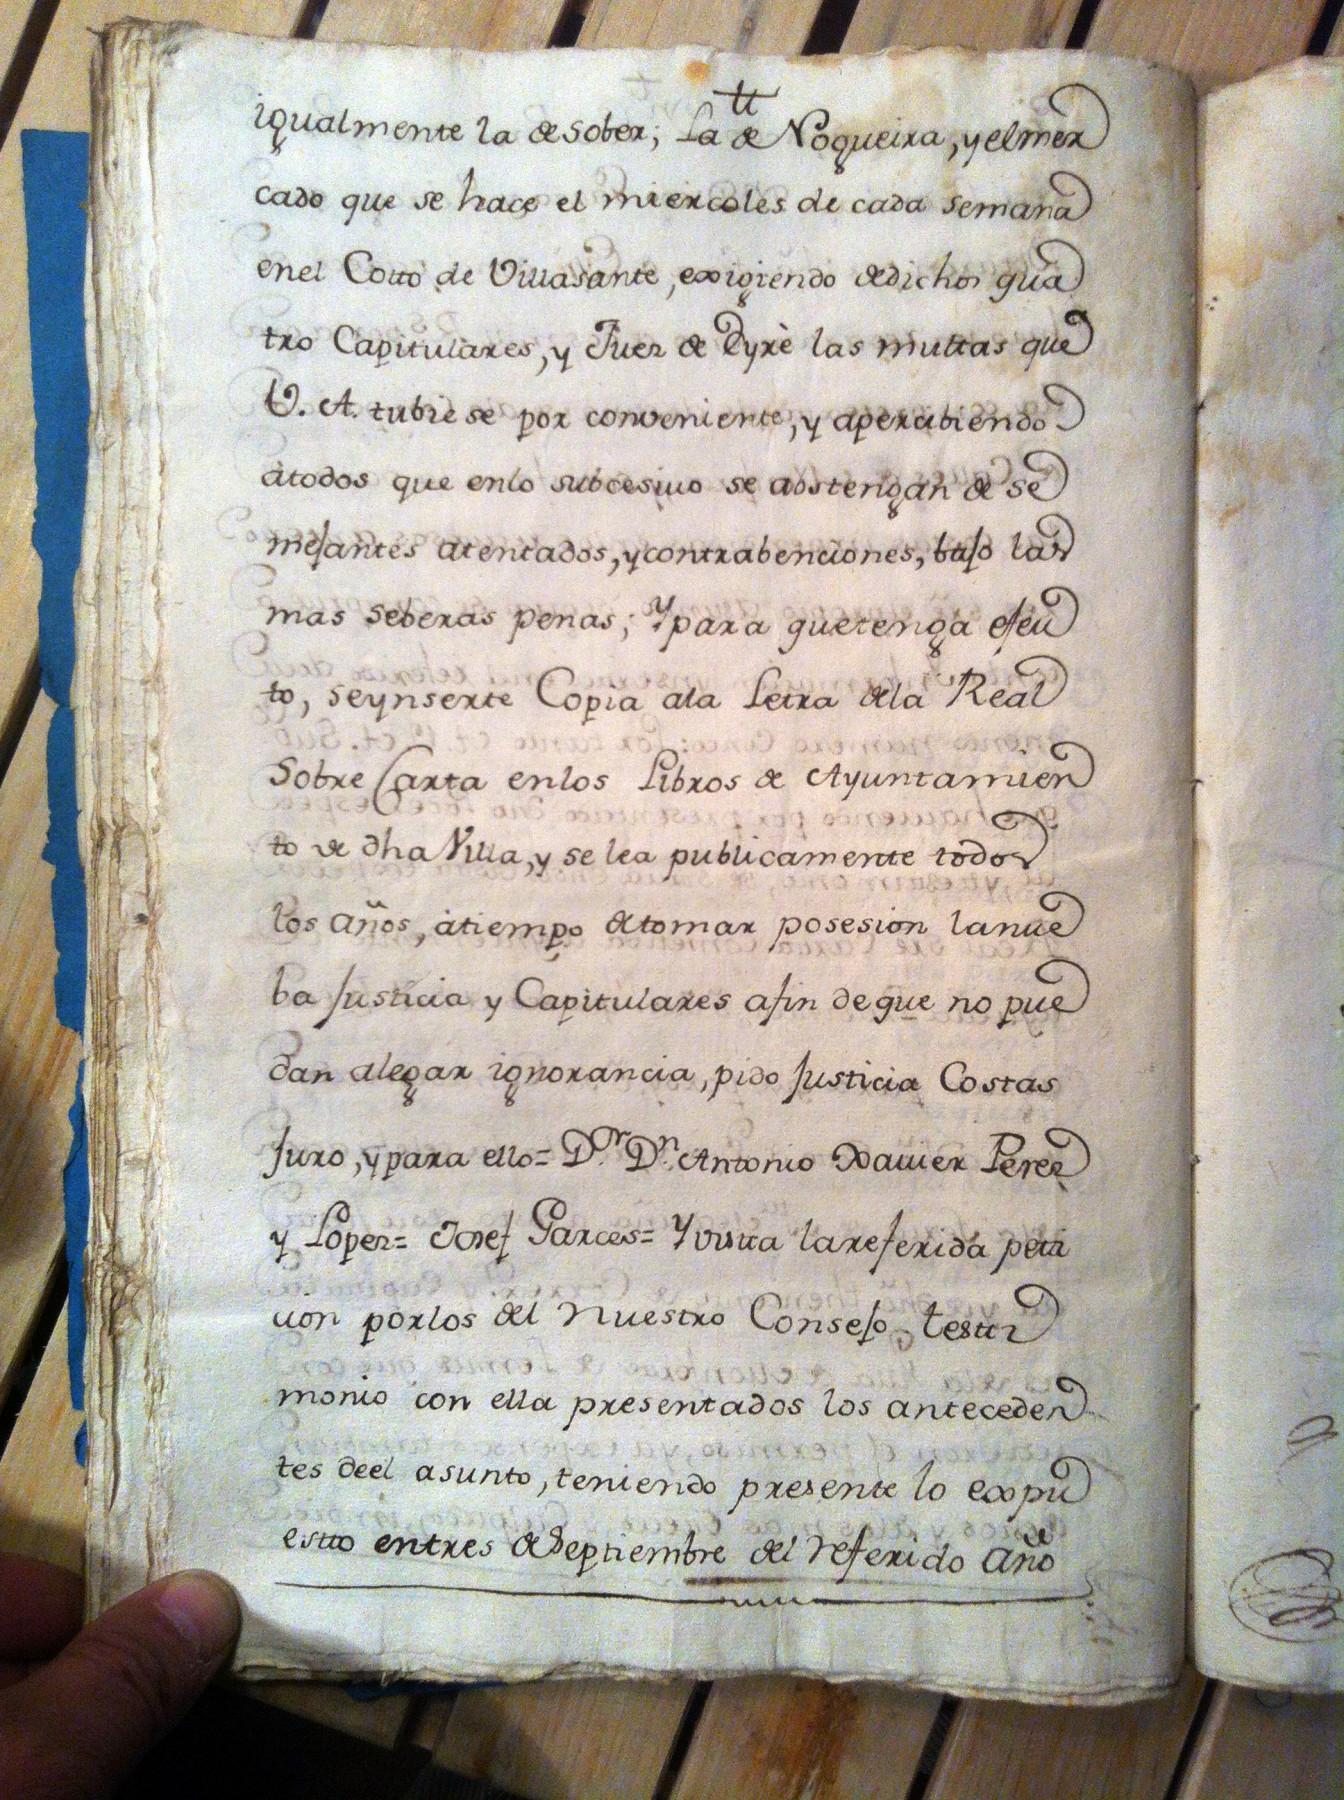 igualmente la de Sober; La de Nogueira, y el mer
cado que se hace el miercoles de cada semana
en el Cotto de Villasante, exigiendo de dichos qua
tro Capitulares, y Juez de Eyrè las multas que
V. A. tubiese por conveniente, y apercibiendo
àtodos que enlo subcesivo se abstengan de se
mejantes atentados, y contrabenciones, bajo las
mas seberas penas; Y para que tenga efeu
to, seynserte Copia ala Letra dela Real
Sobre Carta enlos Libros de Ayuntamien
to de dha Villa, y se lea publicamente todos
los años, àtiempo de tomar posesion lanue
ba Justicia y Capitulares afin de que no pue
dan alegar ignorancia, pido Justicia Costas
Juro, y para ello= D.r D.n Antonio Xavier Perez
y Lopez= Josef Garces= Y vista lareferida peti
cion porlos del Nuestro Consejo testi
monio con ella presentados los anteceden
tes deel asunto, teniendo presente lo expu
estto entres de Septiembre del referido año